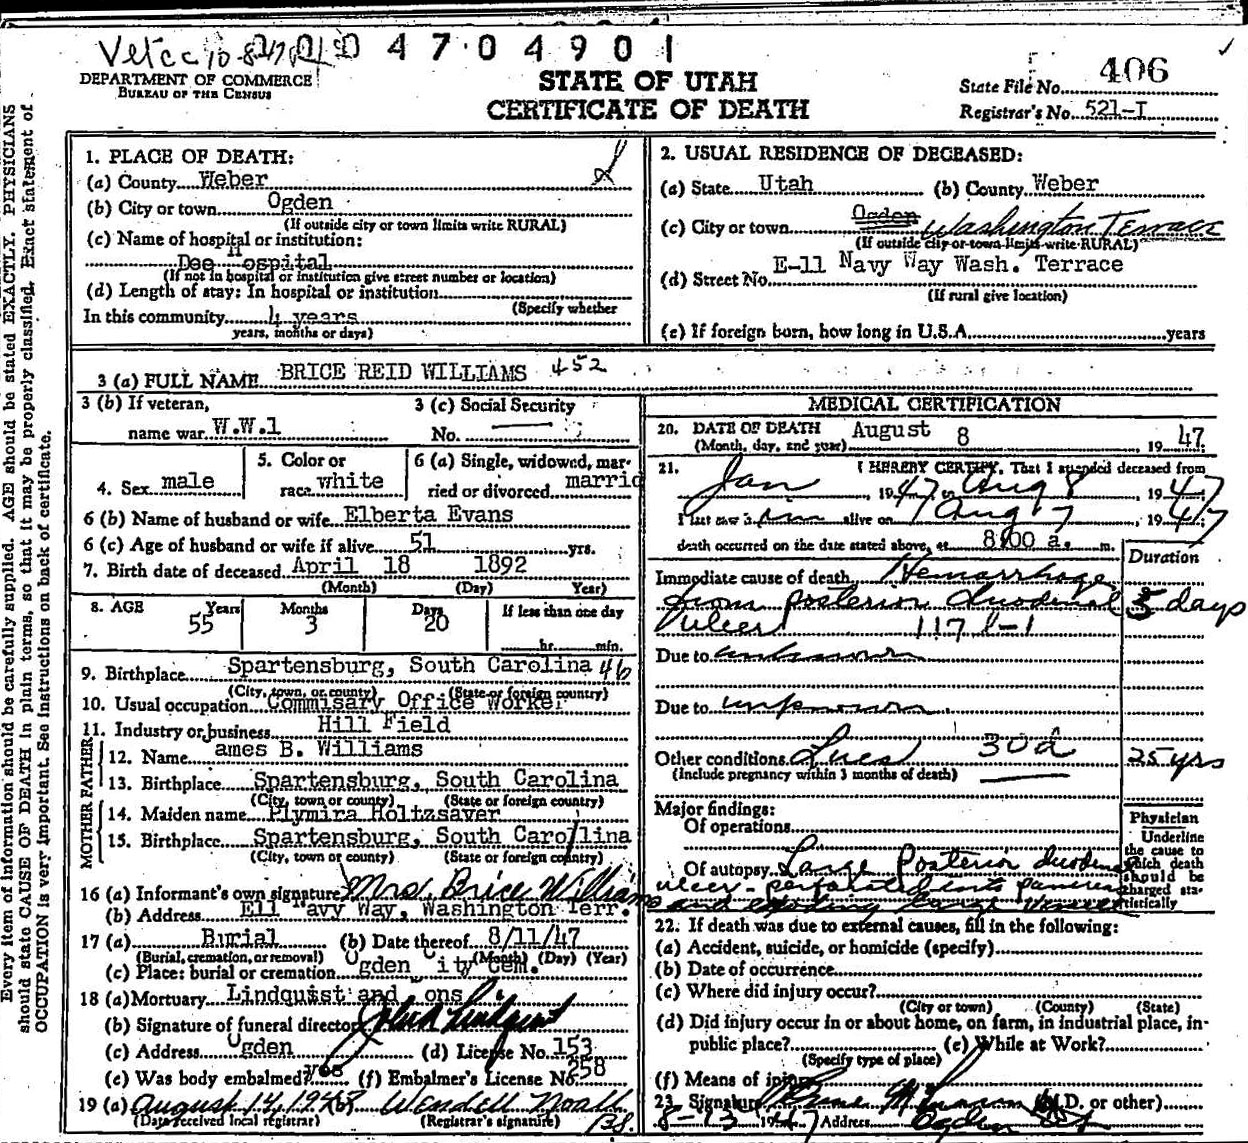 Vet cc 10-8-47
4704901
DEPARTMENT OF COMMERCE
BUREAU OF THE CENSUS
STATE OF UTAH
CERTIFICATE OF DEATH
State File No. 406
Registrar's No. 521-I
Every item of information should be carefully supplied. AGE should be stated EXACTLY. PHYSICIANS
should state CAUSE OF DEATH in plain terms, so that it may be properly classified. Exact statement of
OCCUPATION is very important. See instructions on back of certificate.
1. PLACE OF DEATH:
(a) County Weber
(b) City or town Ogden
(If outside city or town limits write RURAL)
(c) Name of hospital or institution:
Dee Hospital
(If not in hospital or institution give street number or location)
(d) Length of stay: In hospital or institution
(Specify whether
In this community 4 years
years, months or days)
2. USUAL RESIDENCE OF DECEASED:
(a) State Utah (b) County Weber
(c) City or town Ogden Washington Terrace
(If outside city or town limits write RURAL)
(d) Street No. E-11 Navy Way Wash. Terrace
(If rural give location)
(e) If foreign born, how long in U.S.A. years
3 (a) FULL NAME BRICE REID WILLIAMS 452
3 (b) If veteran,
name war W.W.1
3 (c) Social Security
No.
4. Sex male
5. Color or
race white
6 (a) Single, widowed, mar-
ried or divorced marrid
6 (b) Name of husband or wife Elberta Evans
6 (c) Age of husband or wife if alive 51 yrs.
7. Birth date of deceased April 18 1892
(Month) (Day) Year)
8. AGE Years Months Days If less than one day
55 3 20 hr. min.
9. Birthplace Spartensburg, South Carolina 46
(City, town, or county) (State or foreign country)
10. Usual occupation Commisary Office Worker
11. Industry or business Hill Field
FATHER
12. Name ames B. Williams
13. Birthplace Spartensburg, South Carolina
(City, town or county) (State or foreign country)
MOTHER
14. Maiden name Plymira Holtzsaver
15. Birthplace Spartensburg, South Carollina
(City, town or county) (State or foreign country)
16 (a) Informant's own signature Mrs. Brice Williams
(b) Address E11 avy Way, Washington Terr.
17 (a) Burial (b) Date thereof 8/11/47
(Burial, cremation, or removal) (Month) (Day) (Year)
(c) Place: burial or cremation Ogden City Cem.
18 (a) Mortuary Lindquist and ons
(b) Signature of funeral director John A Lindquist
(c) Address Ogden (d) License No. 153
(e) Was body embalmed? yes (f) Embalmer's License No. 258
19 (a) August 14, 1947 Wendell Noall
(Date received local registrar) (Registrar's signature) 138
MEDICAL CERTIFICATION
20. DATE OF DEATH August 8
(Month, day, and year) 19 47
21. I HEREBY CERTIFY, That I attended deceased from
Jan, 1947 to Aug 8, 1947
I last saw him alive on Aug 7, 1947
death occurred on the date stated above, at 8:00 a. m.
Duration
Immediate cause of death Hemorrhage
from posterior duodenal 5 days
ulcer 117
Due to unknown
Due to unknown
Other conditions Lues 30d 25 yrs
(Include pregnancy within 3 months of death)
Major findings:
Of operations
Of autopsy Large Posterior duodenal
ulcer - perforated into pancreas
and eroding large vessel
Physician
Underline
the cause to
which death
should be
charged sta-
tistically
22. If death was due to external causes, fill in the following:
(a) Accident, suicide, or homicide (specify)
(b) Date of occurrence
(c) Where did injury occur?
(City or town) (County) (State)
(d) Did injury occur in or about home, on farm, in industrial place, in-
public place? (e) While at Work?
(Specify type of place)
(f) Means of injury
23. Signature (M.D. or other)
8-13 1947 Address Ogden Ut